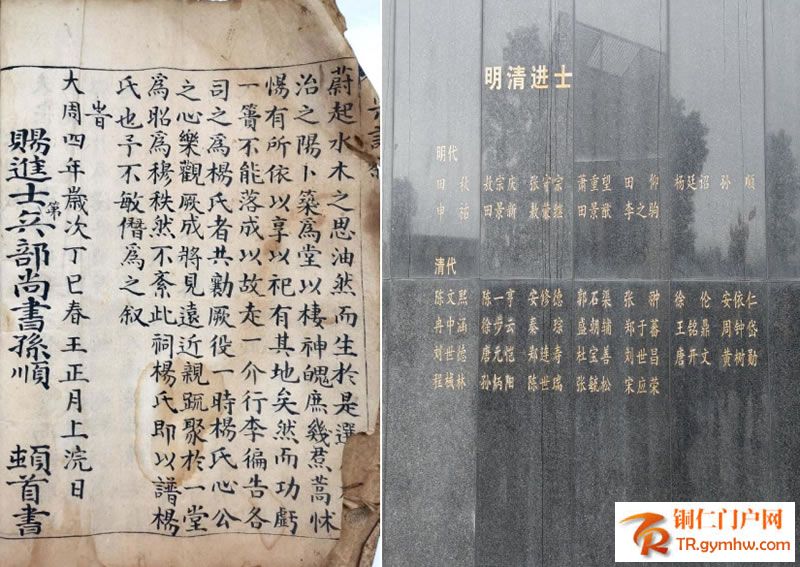 蔚起水木之思油然而生於是選
治之陽卜築為堂以棲神魄庶幾焄蒿怵
惕有所依以享以祀有其地矣然而功虧
一簣不能落成以故走一介行李徧告各
司之為楊氏者共勷厥役一時楊氏心公
之心樂觀厥成將見遠近親疏聚於一堂
為昭為穆秩然不紊此祠楊氏即以譜楊
氏也予不敏僭為之叙
旹
大周四年歲次丁巳春王正月上浣日
賜進士第兵部尚書孫順 頓首書
明清进士
明代
田秋 敖宗庆 张守宗 萧重望 田仰 杨廷诏 孙顺
申祐 田景新 敖荣继 田景猷 李之驹
清代
陈文熙 陈一亨 安修德 郭石渠 张翀 徐伦 安依仁
冉中涵 徐步云 秦琮 盛朝辅 郑于蕃 王铭鼎 周钟岱
刘世德 唐元恺 郑逢寿 杜宝善 刘世昌 唐开文 黄树勋
程棫林 孙炳阳 陈世瑞 张毓松 宋应荣
铜仁门户网
TR.gymhw.com